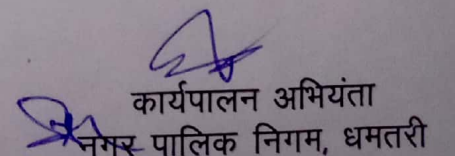 कार्यपालन अभियंता
नगर पालिक निगम, धमतरी